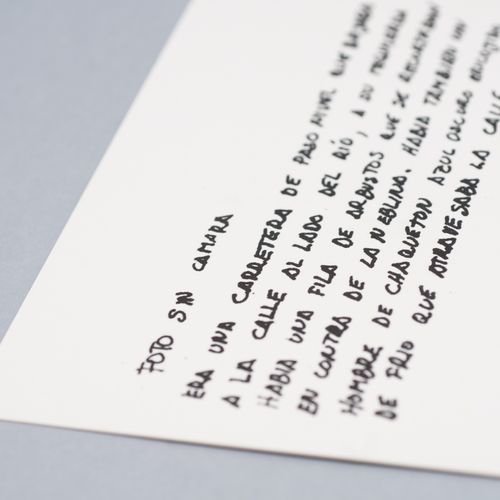 FOTO SIN CAMARA
ERA UNA CARRETERA DE PASO NIVEL QUE BAJABA
A LA CALLE AL LADO DEL RÍO, A SU
HABIA UNA FILA DE ARBUSTOS QUE SE RECORTABAN
EN CONTRA DE LA NEBLINA. HABIA TAMBIEN UN
HOMBRE DE CHAQUETON AZUL OSCURO
DE FRIO QUE ATRAVESABA LA CALLE